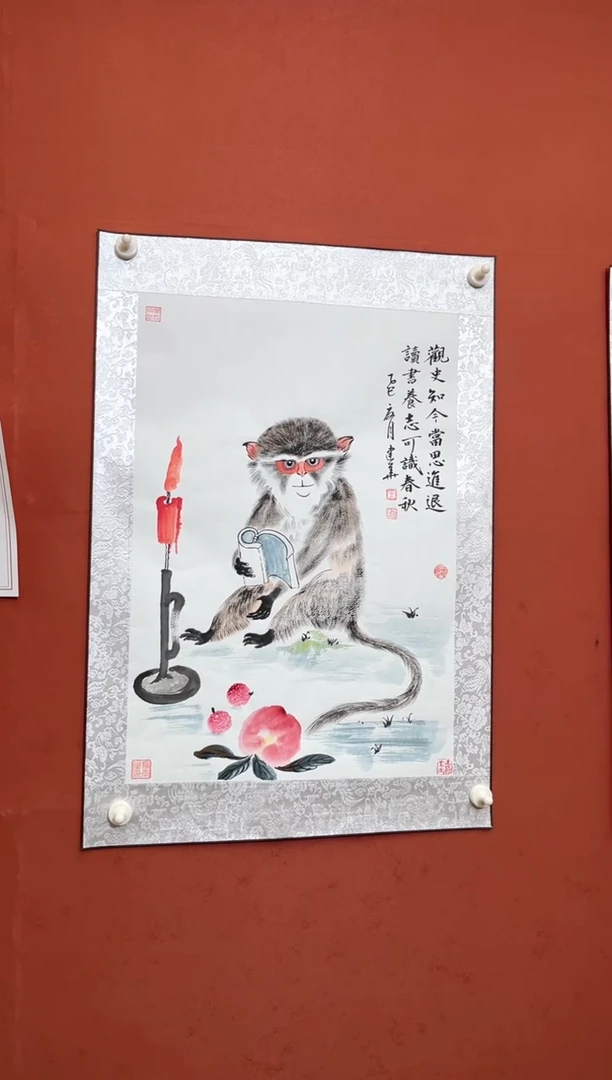 觀史知今當思進退
讀書養志可識春秋
乙巳 月建華